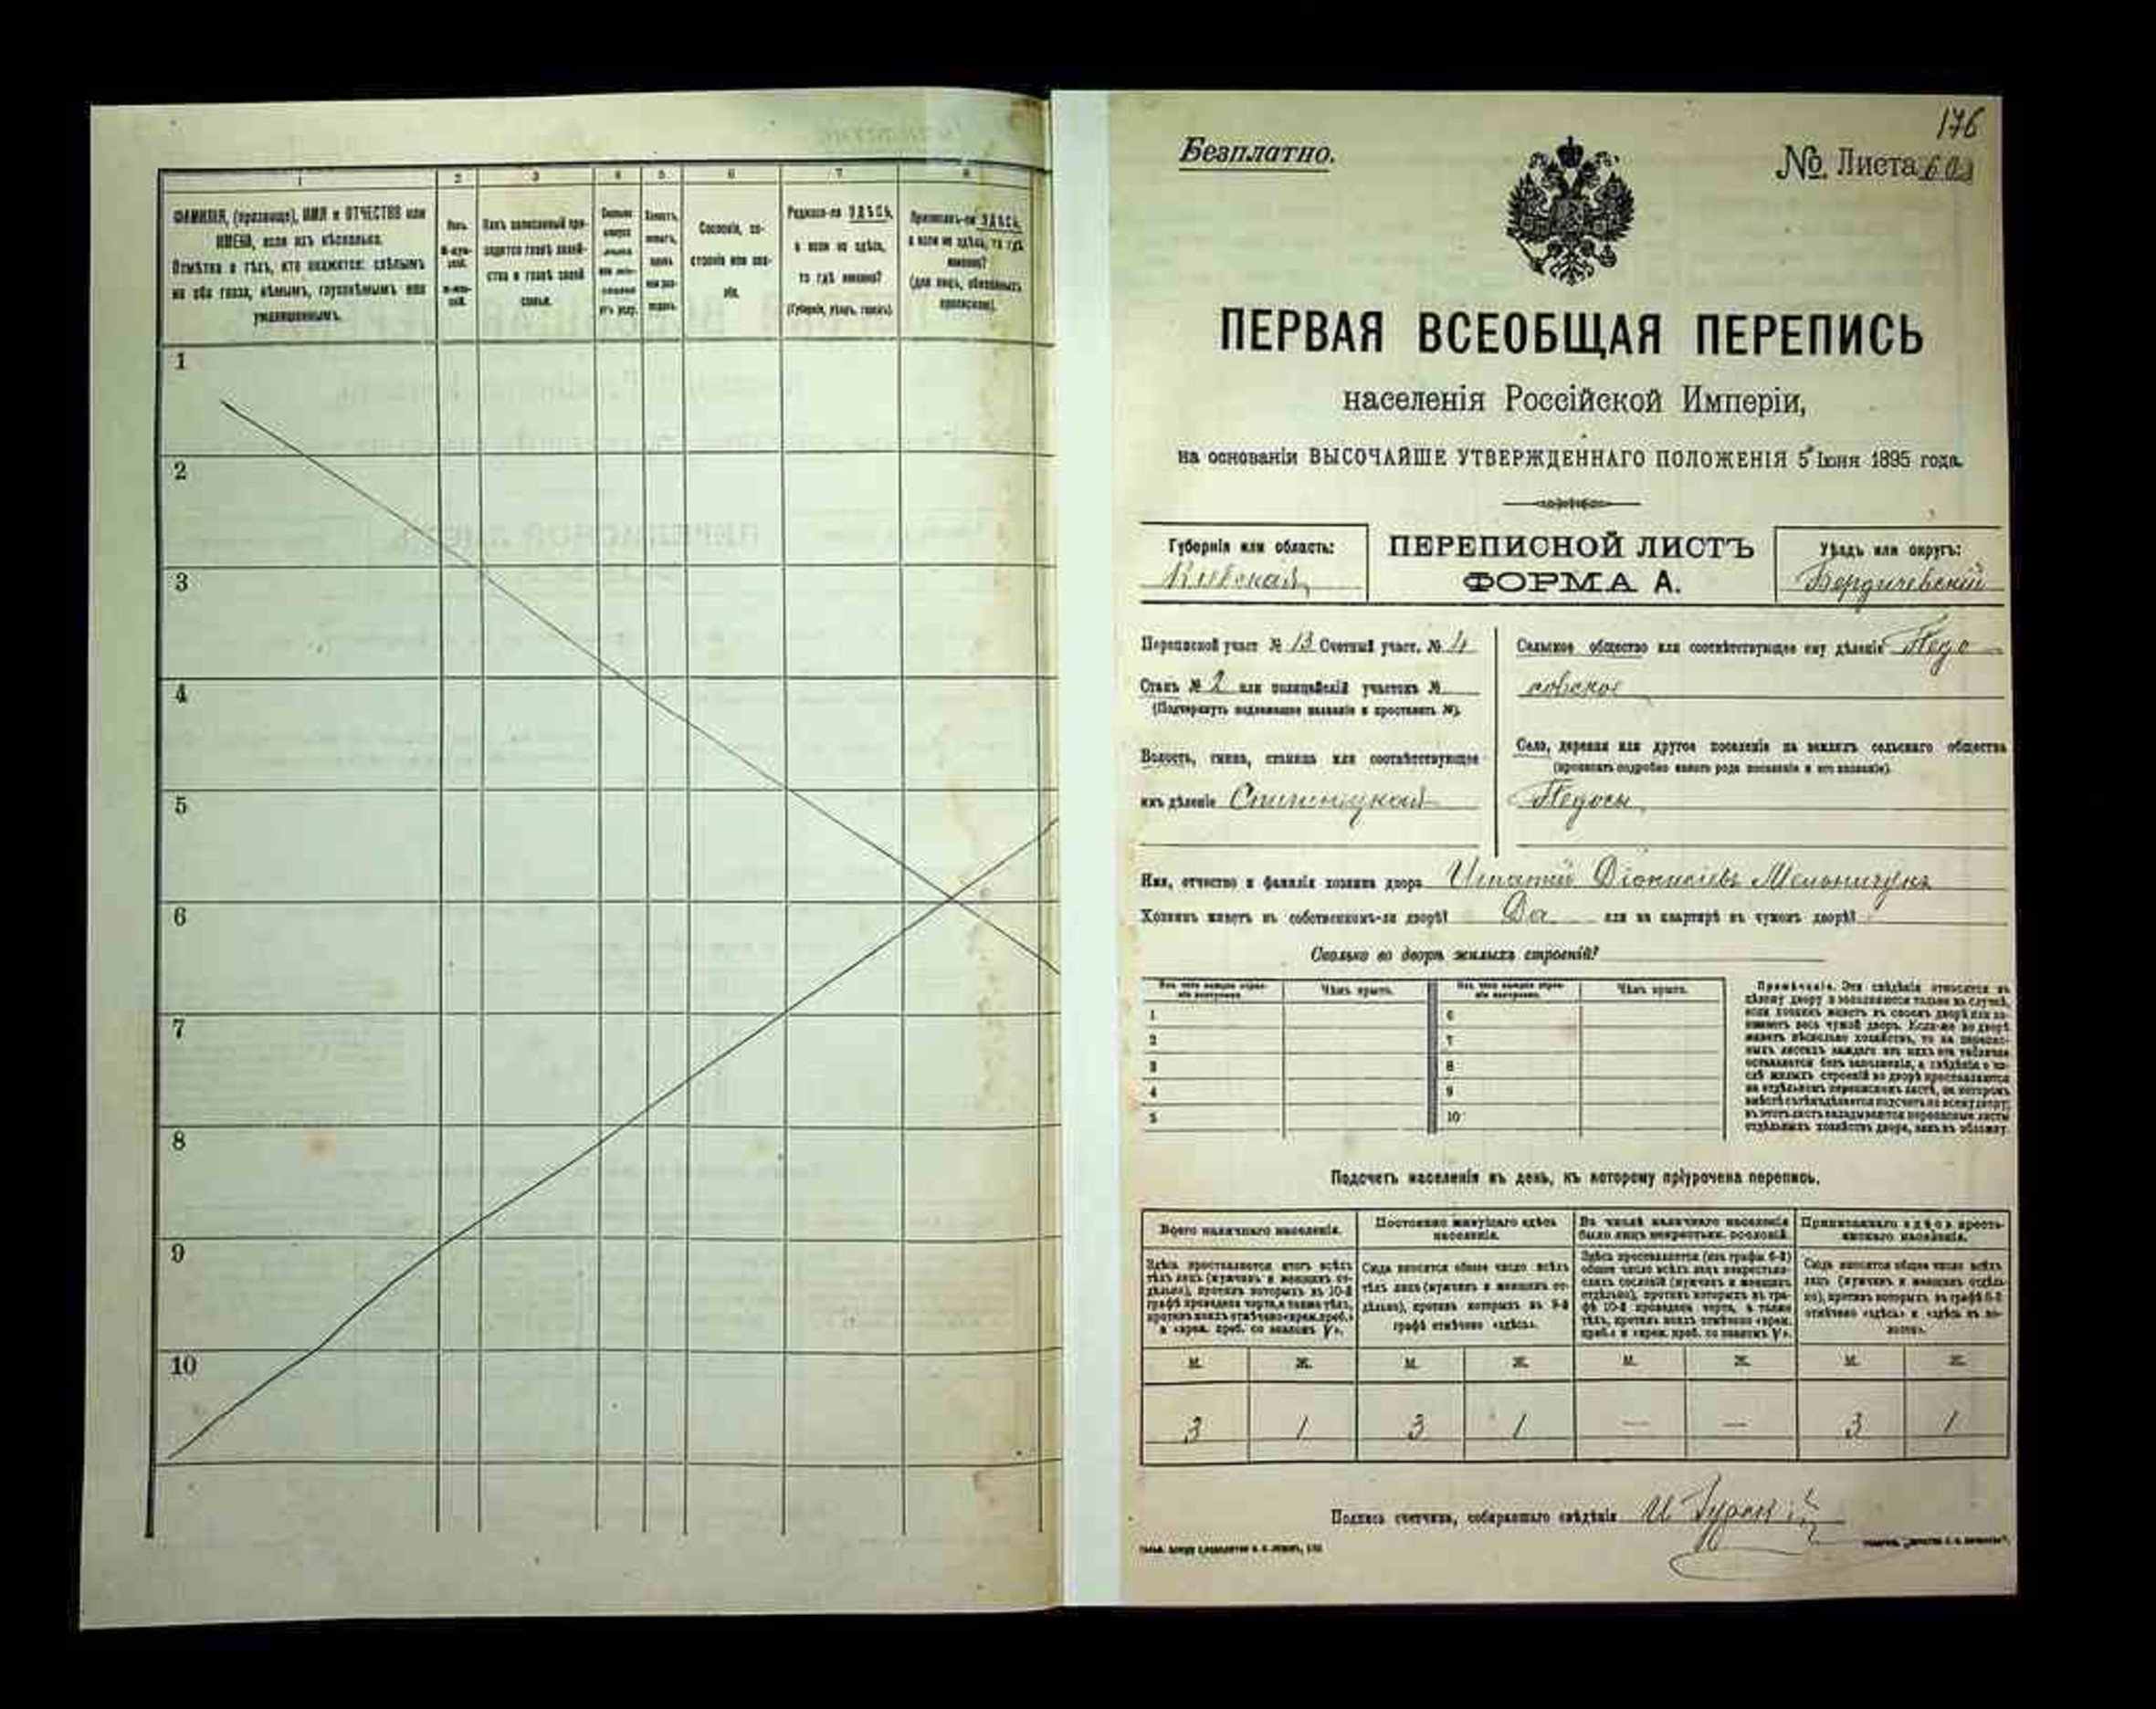 1 2 3 4 5 6 7 8
ФАМИЛІЯ, (прозвище), ИМЯ и ОТЧЕСТВО или
ИМЕНА, если ихъ нѣсколько.
Отмѣтка о тѣхъ, кто окажется: слѣпымъ
на оба глаза, нѣмымъ, глухонѣмымъ или
умалишеннымъ.
Полъ.
М-муж-
ской.
Ж-жен-
скій.
Какъ записанный при-
ходится главѣ хозяй-
ства и главѣ своей
семьи.
Сословіе, со-
стояніе или зва-
ніе.
Родился-ли ЗДѢСЬ,
а если не здѣсь,
то гдѣ именно?
(Губернія, уѣздъ, городъ).
Приписанъ-ли ЗДѢСЬ,
а если не здѣсь, то гдѣ
именно?
(для лицъ, обязанныхъ
припиской).
1
2
3
4
5
6
7
8
9
10
176
Безплатно.
№ Листа
ПЕРВАЯ ВСЕОБЩАЯ ПЕРЕПИСЬ
населенія Россійской Имперіи,
на основаніи ВЫСОЧАЙШЕ УТВЕРЖДЕННАГО ПОЛОЖЕНІЯ 5 Іюня 1895 года.
Губернія или область:
Кіевская
ПЕРЕПИСНОЙ ЛИСТЪ
ФОРМА А.
Уѣздъ или округъ:
Бердичевскій
Переписной участ. № 13 Счетный участ. № 4
Станъ № 2 или полицейскій участокъ №
(Подчеркнуть надлежащее названіе и проставить №).
Волость, гмина, станица или соотвѣтствующее
имъ дѣленіе
Сельское общество или соотвѣтствующее ему дѣленіе
Село, деревня или другое поселеніе на земляхъ сельскаго общества
(прописать подробно какого рода поселеніе и его названіе).
Имя, отчество и фамилія хозяина двора Игнатій Діонисіевъ
Хозяинъ живетъ въ собственномъ-ли дворѣ? Да или на квартирѣ въ чужомъ дворѣ?
Сколько во дворѣ жилыхъ строеній?
Изъ чего каждое строе-
ніе построено. Чѣмъ крыто. Изъ чего каждое строе-
ніе построено. Чѣмъ крыто.
1 6
2 7
3 8
4 9
5 10
Примѣчаніе. Эти свѣдѣнія относятся къ
цѣлому двору и заполняются только въ случаѣ,
если хозяинъ живетъ въ своемъ дворѣ или за-
нимаетъ весь чужой дворъ. Если-же во дворѣ
живетъ нѣсколько хозяйствъ, то на перепис-
ныхъ листахъ каждаго изъ нихъ эта табличка
оставляется безъ заполненія, а свѣдѣнія о чи-
слѣ жилыхъ строеній во дворѣ проставляются
на отдѣльномъ переписномъ листѣ, на которомъ
вмѣстѣ съ тѣмъ дѣлается подсчетъ по всему двору;
въ этотъ листъ вкладываются переписные листы
отдѣльныхъ хозяйствъ двора, какъ въ обложку.
Подсчетъ населенія къ дню, къ которому пріурочена перепись.
Всего наличнаго населенія.
Здѣсь проставляется итогъ всѣхъ
тѣхъ лицъ (мужчинъ и женщинъ от-
дѣльно), противъ которыхъ въ 10-й
графѣ проведена черта, а также тѣхъ,
противъ коихъ отмѣчено «врем. преб.»
Постоянно живущаго здѣсь
населенія.
Сюда вносится общее число всѣхъ
тѣхъ лицъ (мужчинъ и женщинъ от-
дѣльно), противъ которыхъ въ 9-й
графѣ отмѣчено «здѣсь».
Въ числѣ наличнаго населенія
было лицъ некрестьян. сословій.
Приписаннаго здѣсь кресть-
янскаго населенія.
Сюда вносится общее число всѣхъ
лицъ (мужчинъ и женщинъ отдѣль-
но), противъ которыхъ въ графѣ 8-й
отмѣчено «здѣсь» и «здѣсь въ во-
лости».
М. Ж. М. Ж. М. Ж. М. Ж.
3 1 3 1 — — 3 1
Подпись счетчика, собиравшаго свѣдѣнія